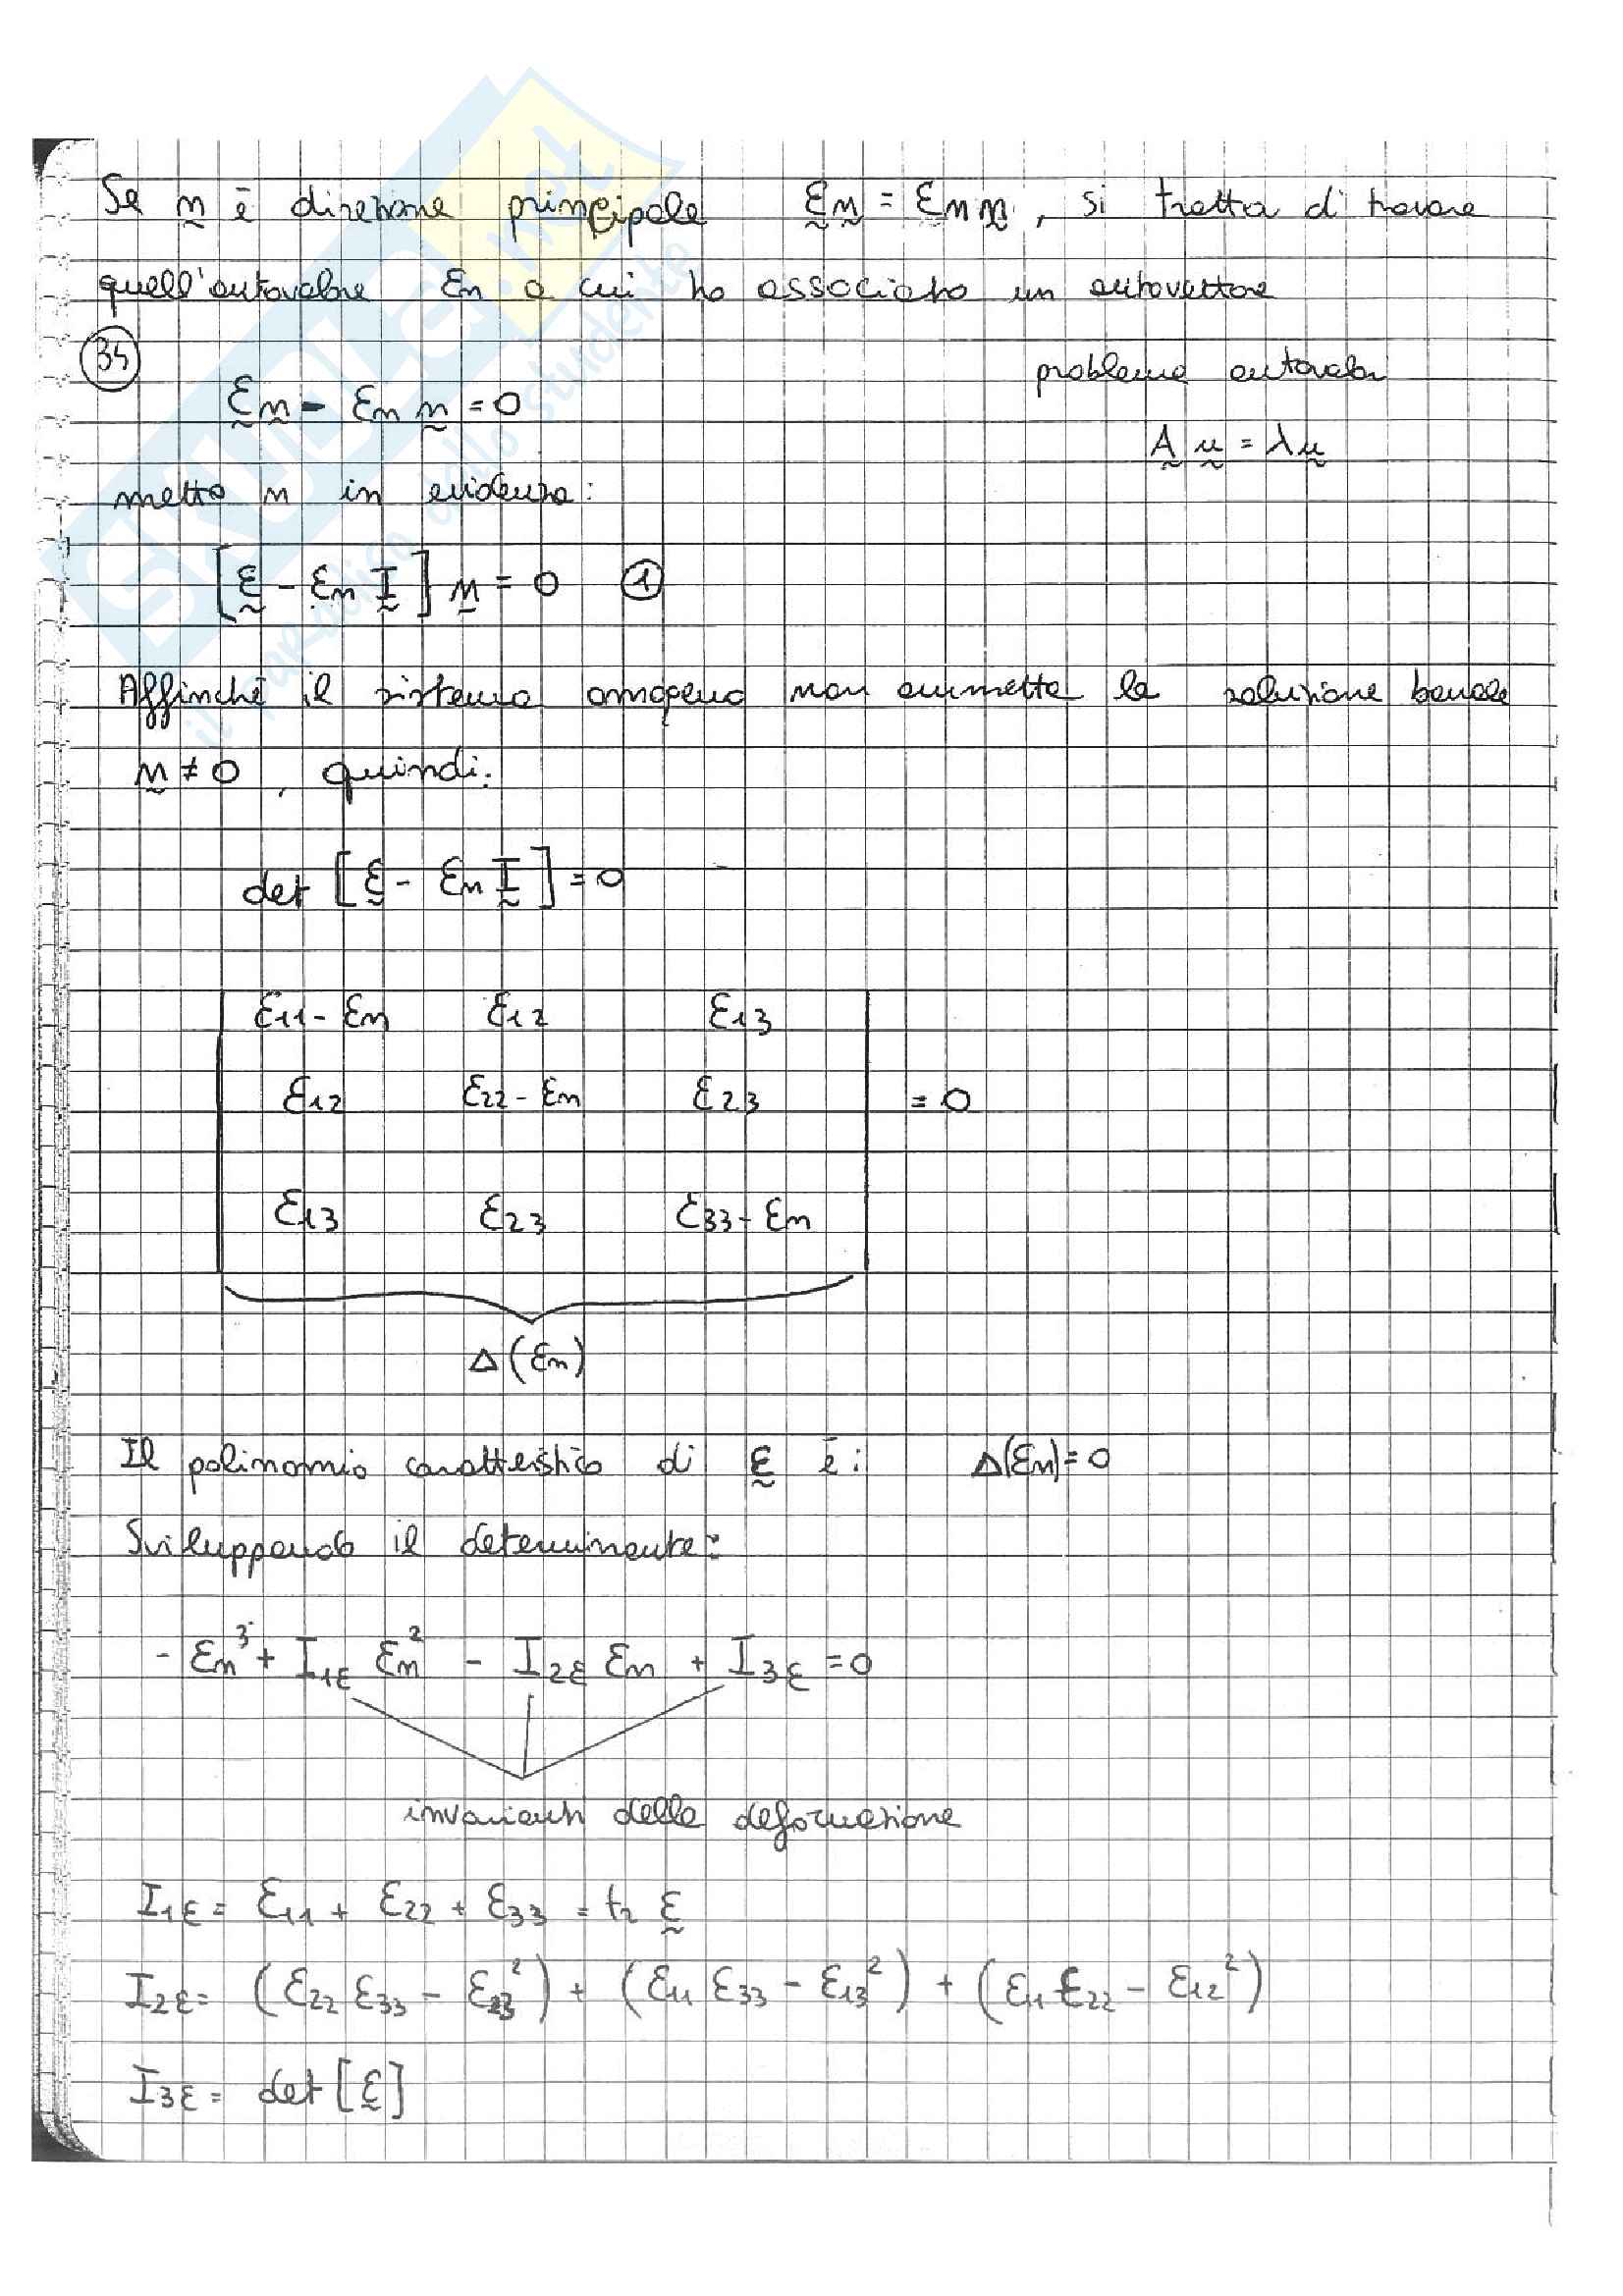 Se n è direzione principale ε n = εn n , si tratta di trovare
quell'autovalore εn a cui ho associato un autovettore
34
problema autovalori
ε n - εn n = 0
A u = λ u
metto n in evidenza:
[ε - εn I] n = 0 ①
Affinché il sistema omogeneo non ammetta la soluzione banale
n ≠ 0 , quindi:
det [ε - εn I] = 0
ε11 - εn ε12 ε13
ε12 ε22 - εn ε23 = 0
ε13 ε23 ε33 - εn
Δ(εn)
Il polinomio caratteristico di ε è: Δ(εn) = 0
Sviluppando il determinante:
- εn³ + I1ε εn² - I2ε εn + I3ε = 0
invarianti della deformazione
I1ε = ε11 + ε22 + ε33 = tr ε
I2ε = (ε22 ε33 - ε23²) + (ε11 ε33 - ε13²) + (ε11 ε22 - ε12²)
I3ε = det [ε]
SKUOLA.net
il paradiso dello studente